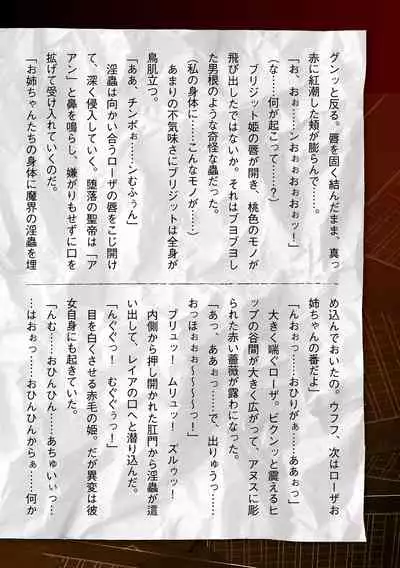 グンッと反る。唇を固く結んだまま、真っ
赤に紅潮した頬が膨らんで……。
「お、おぉ……ンおぉおぉおぉおッ！」
(な……何が起こって……？)
ブリジット姫の唇が開き、桃色のモノが
飛び出したではないか。それはブヨブヨし
た男根のような奇怪な蟲だった。
(私の身体に……こんなモノが……)
あまりの不気味さにブリジットは全身が
鳥肌立つ。
「ああ、チンポぉ……ンむふぅん」
淫蟲は向かい合うローザの唇をこじ開け
て、深く侵入していく。堕落の聖帝は「ア
アン」と鼻を鳴らし、嫌がりもせずに口を
拡げて受け入れていくのだ。
「お姉ちゃんたちの身体に魔界の淫蟲を埋
め込んでおいたの。ウフフ、次はローザお
姉ちゃんの番だよ」
「んおぉっ……おひりがぁ……ああぉっ」
大きく喘ぐローザ。ビクンッと震えるヒ
ップの谷間が大きく広がって、アヌスに彫
られた赤い薔薇が露わになった。
「あっ、ああぉっ……で、出りゅうっ……
おっほぉぉぉ〜〜〜〜っ！」
ブリュッ！　ムリュッ！　ズルゥッ！
内側から押し開かれた肛門から淫蟲が這
い出して、レイアの口へと潜り込んだ。
「んぐぐっ！　むぐぐぅっ！」
目を白くさせる赤毛の姫。だが異変は彼
女自身にも起きていた。
「んむ……おひんひん……あちゅいぃっ…
…はおぉっ……おひんひんからぁ……何か